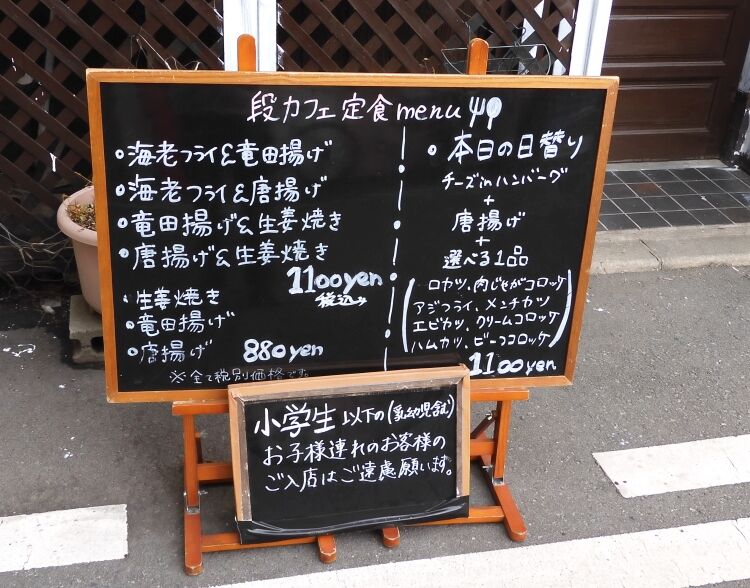 段カフェ定食menu
・海老フライ&竜田揚げ
・海老フライ&唐揚げ
・竜田揚げ&生姜焼き
・唐揚げ&生姜焼き
1100yen
税込
・生姜焼き
・竜田揚げ
・唐揚げ 880yen
※全て税別価格です。
・本日の日替り
チーズinハンバーグ
+
唐揚げ
+
選べる1品
(ロカツ、肉じゃがコロッケ
アジフライ、メンチカツ
エビカツ、クリームコロッケ
ハムカツ、ビーフコロッケ)
1100yen
小学生以下の(乳幼児含む)
お子様連れのお客様の
ご入店はご遠慮願います。